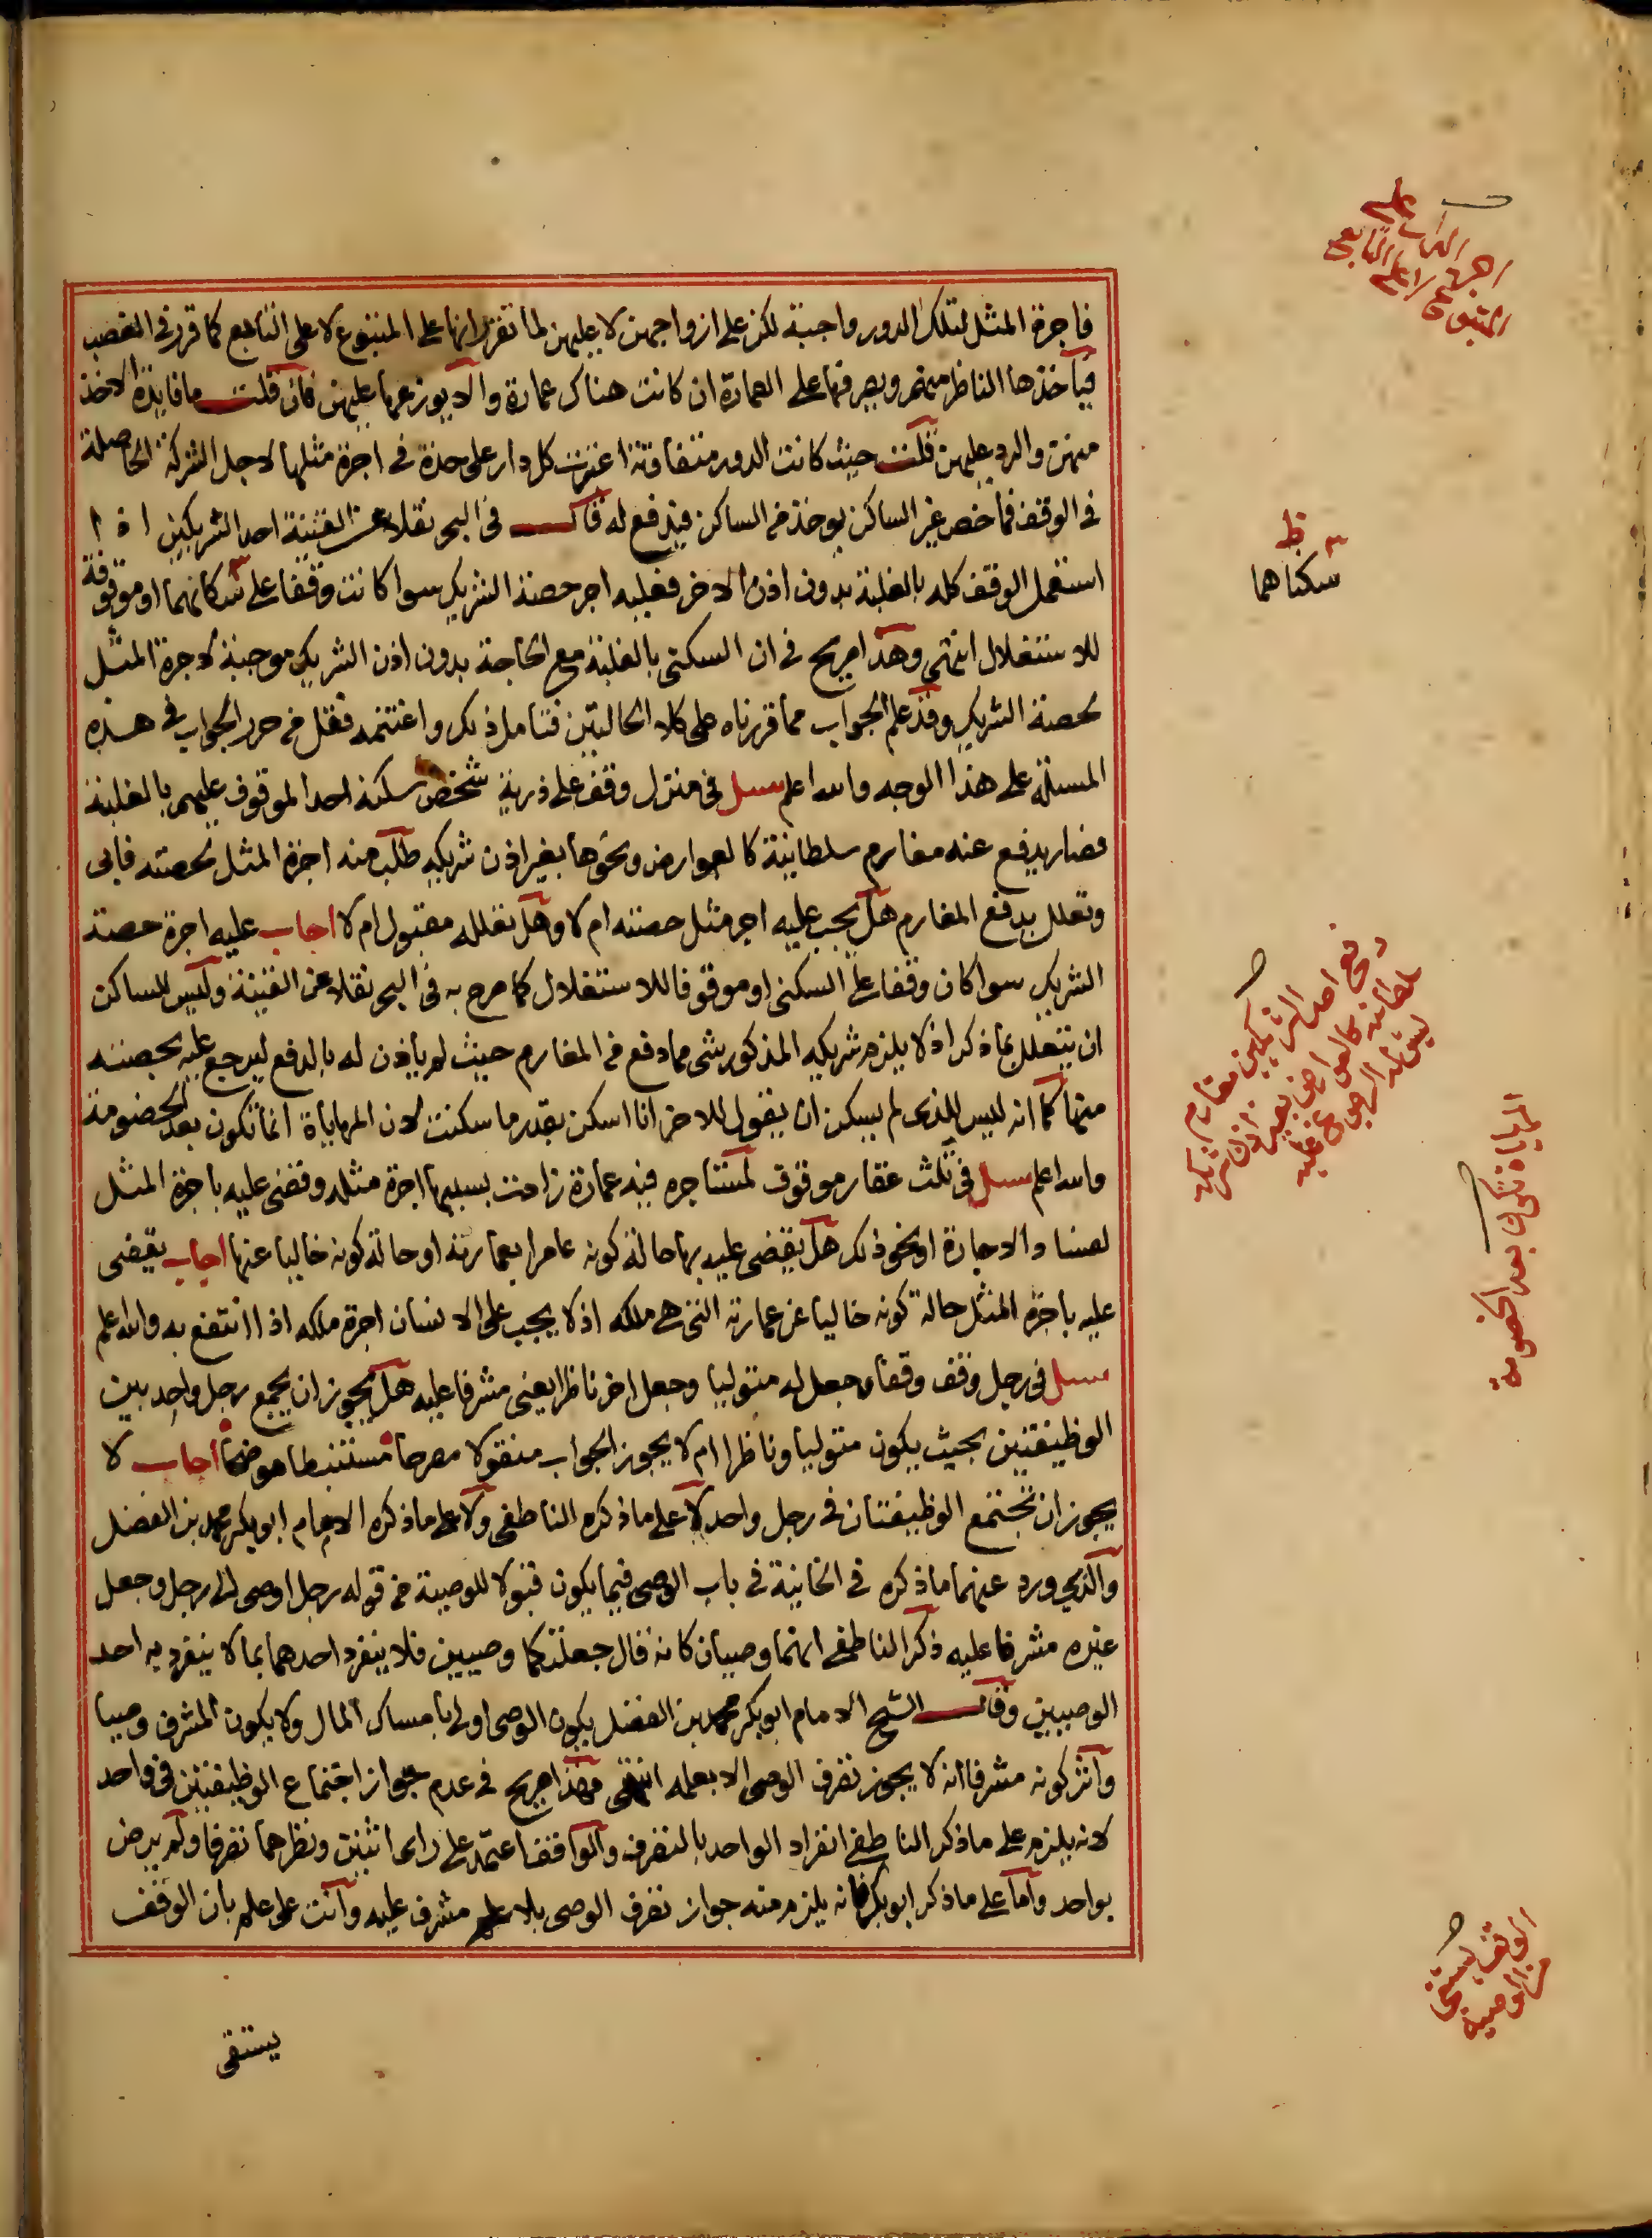 فاجرة المثل لتلك الدور واجبة لكن على ازواجهن لا عليهن لما تقرر انها على المتبوع لا على التابع كما قرر في الغصب
فيأخذها الناظر منهم ويصرفها على العمارة ان كانت هناك عمارة والا يوزعها عليهن فان قلت ما فايدة الاخذ
منهن والرد عليهن قلت حيث كانت الدور متفاوتة اعتبرت كل دار على حدة في اجرة مثلها لاجل الشركة الحاصلة
في الوقف فما خص غير الساكن يوخذ من الساكن فيدفع له قال في البحر نقلا عن القنية احد الشريكين اذا
استعمل الوقف كله بالغلبة بدون اذن الاخر فعليه اجر حصة الشريك سوا كانت وقفا على سكانهما او موقوفة
للاستغلال انتهى وهذا صريح في ان السكنى بالغلبة مع الحاجة بدون اذن الشريك موجبة لاجرة المثل
لحصة الشريك وقد علم الجواب مما قررناه على كلا الحالتين فتامل ذلك واغتنمه فقل من حرر الجواب في هذه
المسئلة على هذا الوجه والله اعلم سئل في منزل وقف على ذرية شخص سكنه احد الموقوف عليهم بالغلبة
فصار يدفع عنه مغارم سلطانية كالعوارض ونحوها بغير اذن شريكه طلب منه اجرة المثل لحصته فابى
وتعلل بدفع المغارم هل يجب عليه اجر مثل حصته ام لا وهل تعلله مقبول ام لا اجاب عليه اجرة حصة
الشريك سوا كان وقفا على السكنى او موقوفا للاستغلال كما صرح به في البحر نقلا عن القنية وليس للساكن
ان يتعلل بما ذكر اذ لا يلزم شريكه المذكور شي مما دفع من المغارم حيث لم ياذن له بالدفع ليرجع عليه بحصته
منها كما انه ليس للذي لم يسكن ان يقول للاخر انا اسكن بقدر ما سكنت لان المهاياة انما تكون بعد الخصومة
والله اعلم سئل في ثلث عقار موقوف لمستاجره فيه عمارة زادت بسببها اجرة مثله وقضى عليه باجرة المثل
لفساد الاجارة او نحو ذلك هل يقضى عليه بها حالة كونه عامرا بعمارته او حالة كونه خاليا عنها اجاب يقضى
عليه باجرة المثل حالة كونه خاليا عن عمارته التي هي ملكه اذ لا يجب على الانسان اجرة ملكه اذا انتفع به والله اعلم
سئل في رجل وقف وقفا وجعل له متوليا وجعل اخر ناظرا يعني مشرفا عليه هل يجوز ان يجمع رجل واحد بين
الوظيفتين بحيث يكون متوليا وناظرا ام لا يجوز الجواب منقولا مصرحا مستنبطا موضحا اجاب لا
يجوز ان تجتمع الوظيفتان في رجل واحد لا على ما ذكره الناطفي ولا على ما ذكره الامام ابو بكر محمد بن الفضل
والذي ورد عنهما ما ذكره في الخانية في باب الوصي فيما يكون قبولا للوصية من قوله رجل اوصى الى رجل وجعل
غيره مشرفا عليه ذكر الناطفي انهما وصيان كانه قال جعلتكما وصيين فلا ينفرد احدهما بما لا ينفرد به احد
الوصيين وقال الشيخ الامام ابو بكر محمد بن الفضل يكون الوصي اولى بامساك المال ولا يكون المشرف وصيا
واثر كونه مشرفا انه لا يجوز تصرف الوصي الا بعلمه انتهى فهذا صريح في عدم جواز اجتماع الوظيفتين في واحد
لانه يلزم على ما ذكر الناطفي انفراد الواحد بالتصرف والواقف اعتمد على راى اثنين ونظرهما تصرفا ولم يرض
بواحد واما على ما ذكر ابو بكر فانه يلزم منه جواز تصرف الوصي بلا علم مشرف عليه وانت على علم بان الوقف
يستقى
المتبوع
ظ
سكناهما
دفع احد الشريكين مغارم
سلطانية كالعوارض بغير اذن شريكه
ليس له الرجوع عليه
المهاياة تكون بعد الخصومة
الوقف يستقى
من الوصية